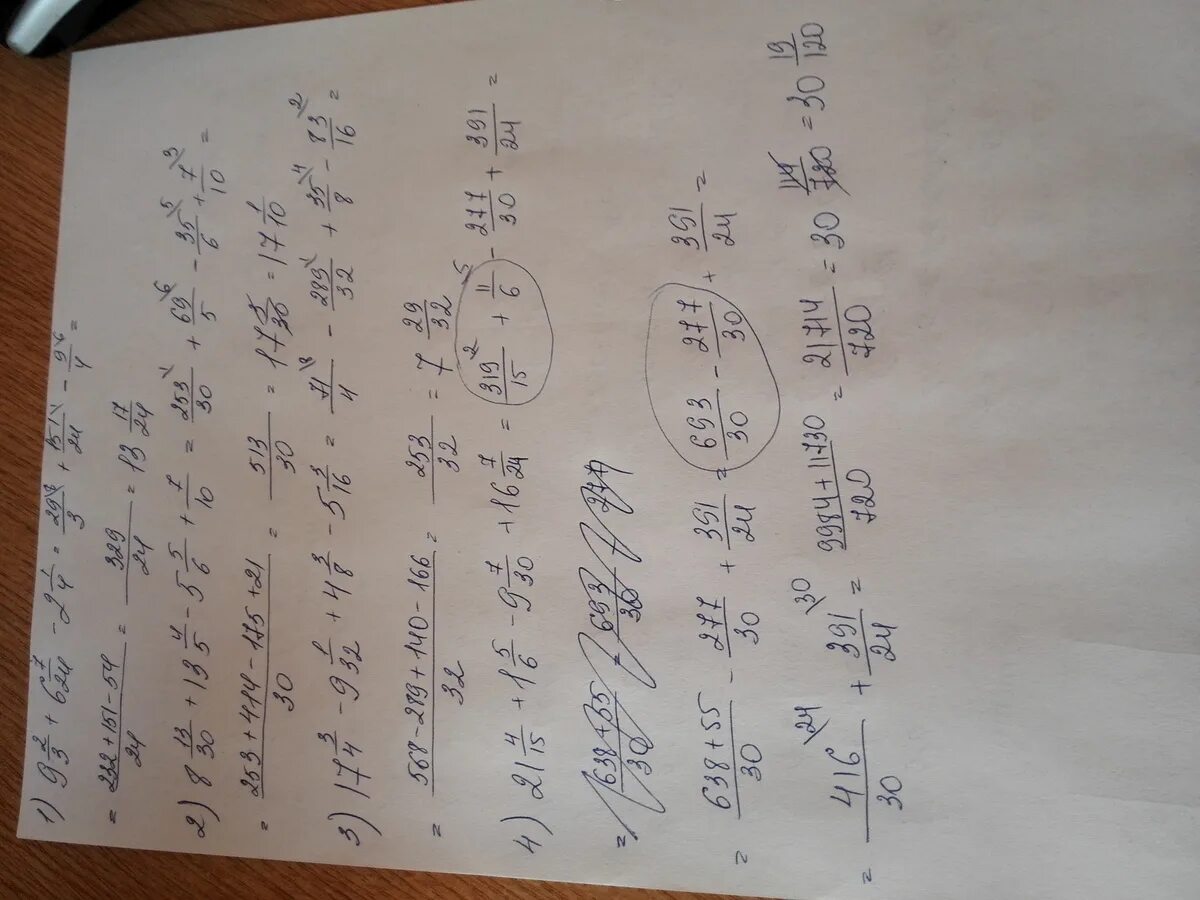 1) 9 2/3 + 6 7/24 - 2 1/4 = 29\8/3 + 151\1/24 - 9\6/4 =
= (232+151-54)/24 = 329/24 = 13 17/24
2) 8 13/30 + 13 4/5 - 5 5/6 + 7/10 = 253\1/30 + 69\6/5 - 35\5/6 + 7\3/10 =
= (253+414-175+21)/30 = 513/30 = 17 3/30 = 17 1/10
3) 17 3/4 - 9 1/32 + 4 3/8 - 5 3/16 = 71\8/4 - 289\1/32 + 35\4/8 - 83\2/16 =
= (568-289+140-166)/32 = 253/32 = 7 29/32
4) 21 4/15 + 1 5/6 - 9 7/30 + 16 7/24 = 319\2/15 + 11\5/6 - 277/30 + 391/24 =
= (638+55)/30 = 693/30 - 277
= (638+55)/30 - 277/30 + 391/24 = 693/30 - 277/30 + 391/24 =
= 416\24/30 + 391\30/24 = (9984+11730)/720 = 21714/720 = 30 114/720 = 30 19/120